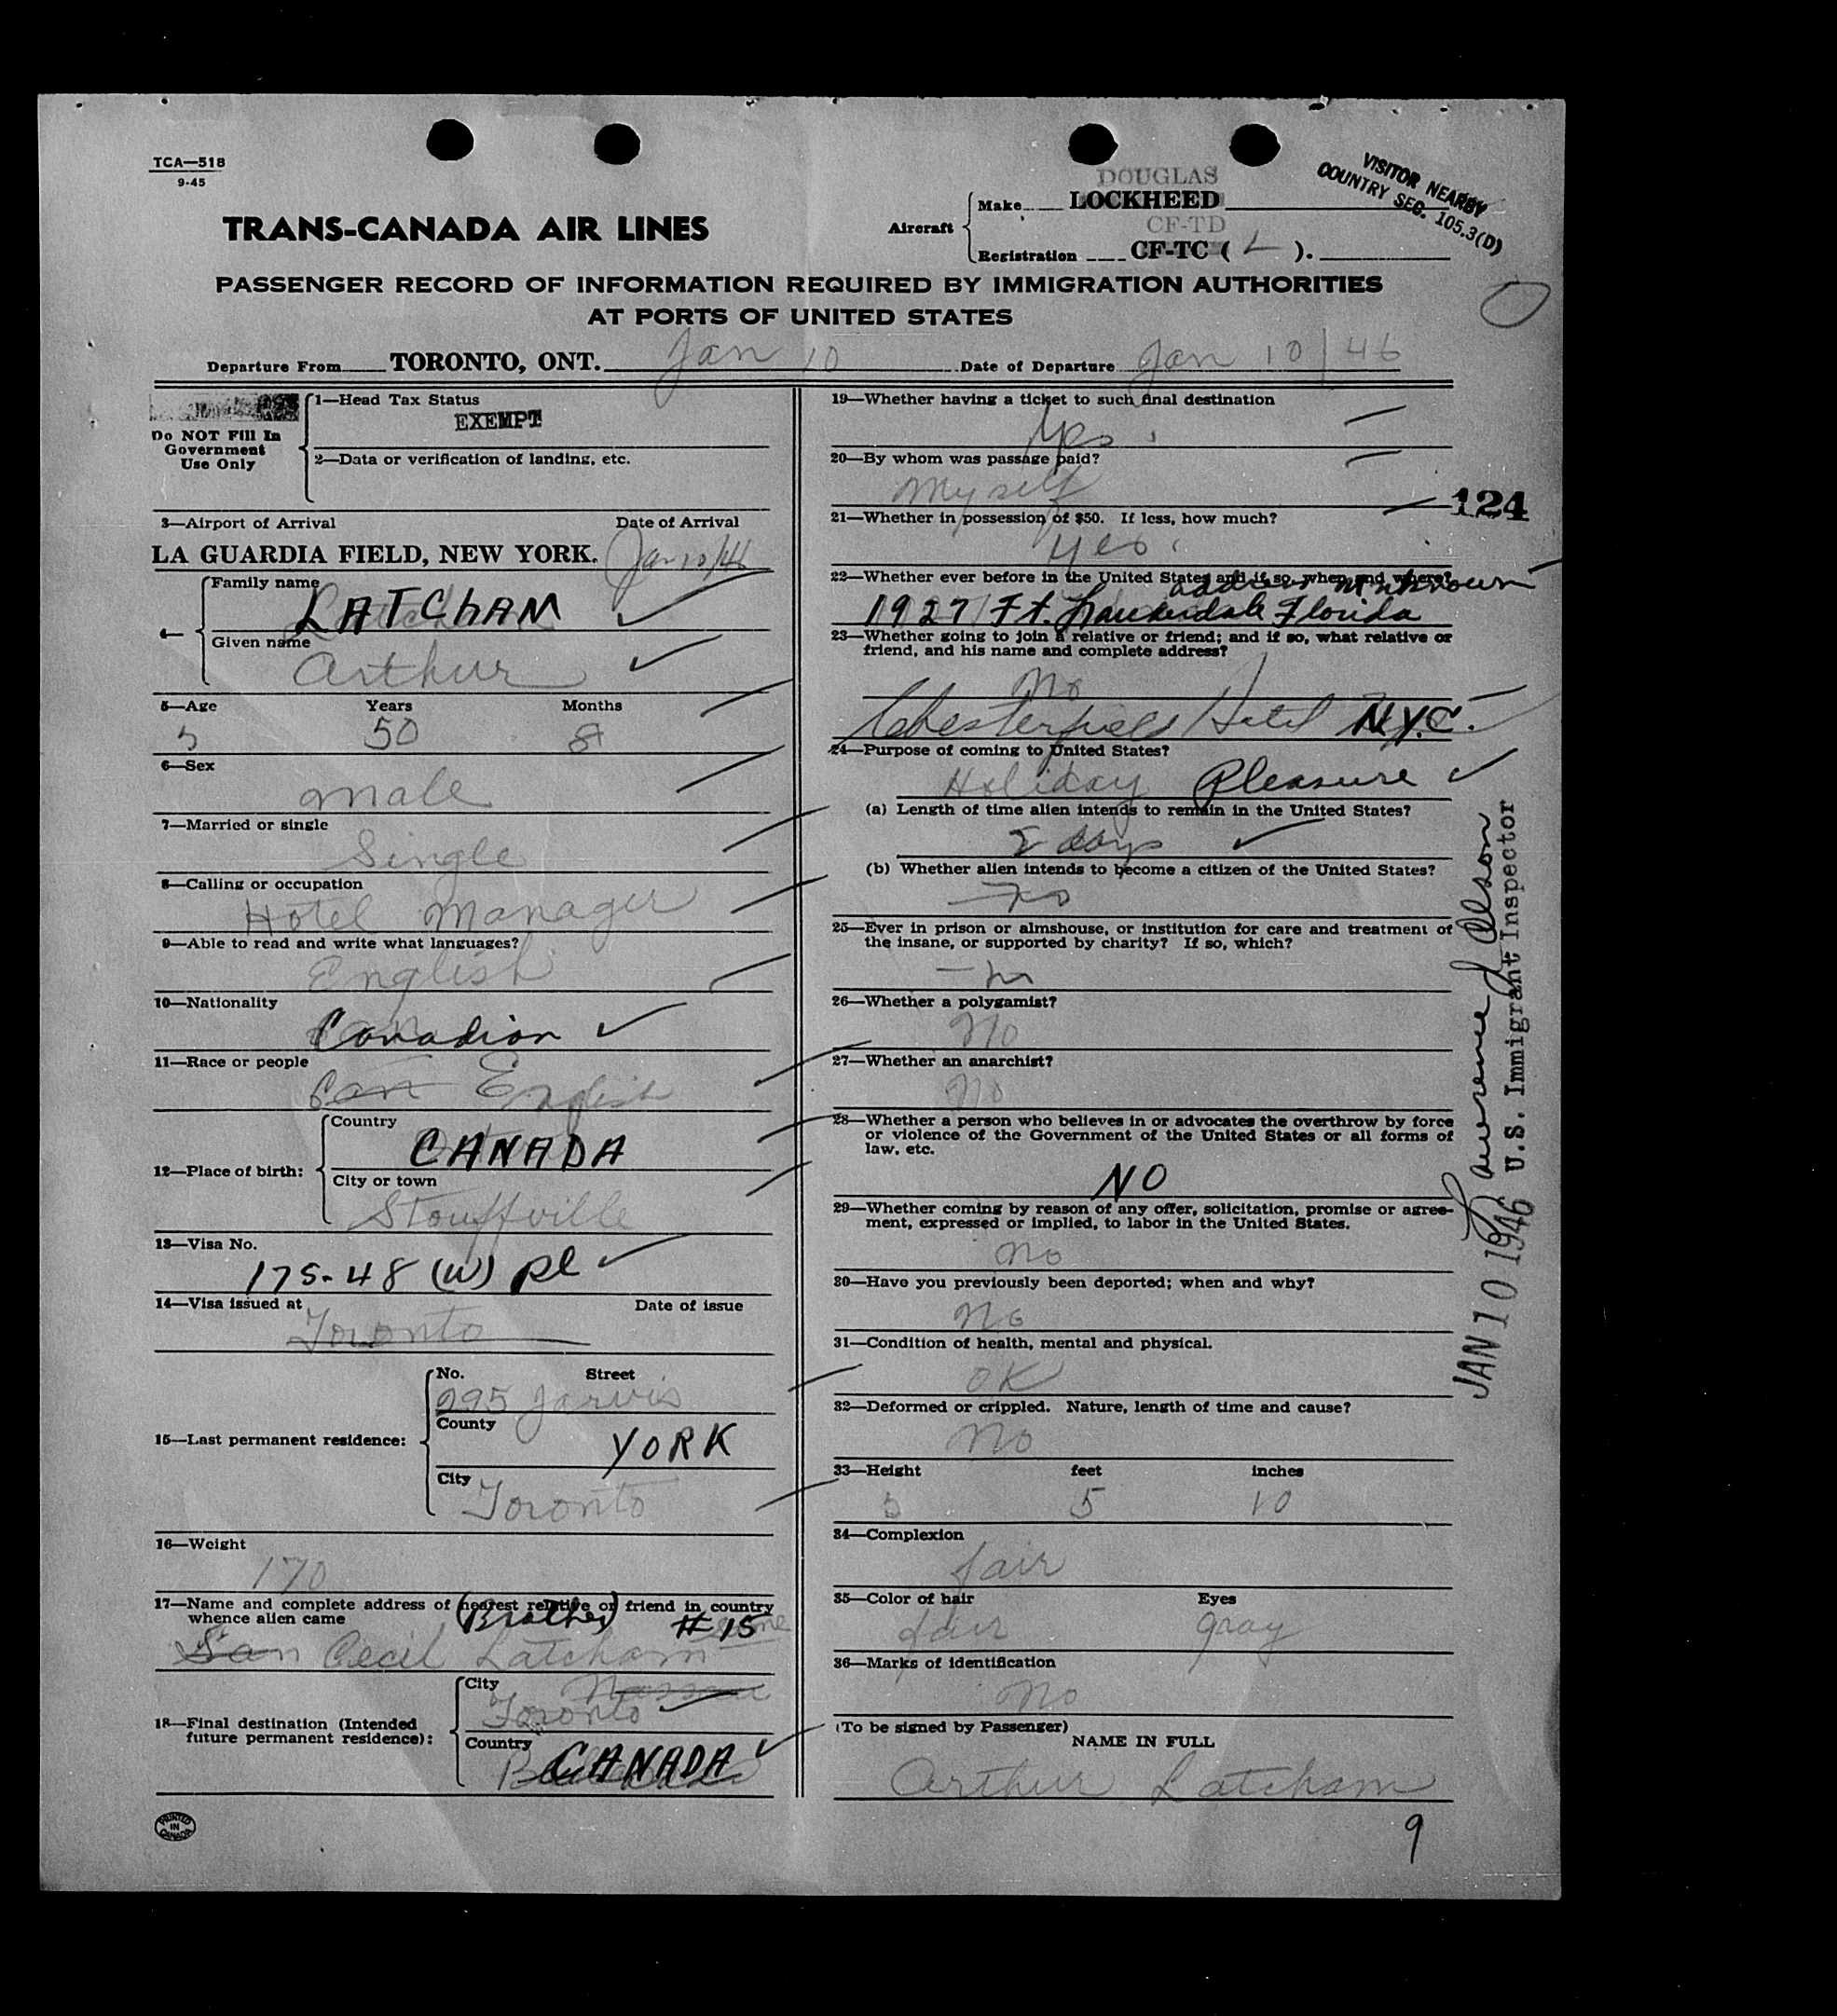 TCA—518
9-45
VISITOR NEARBY
COUNTRY SEC. 105.3(D)
DOUGLAS
Make LOCKHEED
TRANS-CANADA AIR LINES
Aircraft
CF-TD
Registration CF-TC ( L ).
PASSENGER RECORD OF INFORMATION REQUIRED BY IMMIGRATION AUTHORITIES
AT PORTS OF UNITED STATES
Departure From TORONTO, ONT. Jan 10 Date of Departure Jan 10/46
Do NOT Fill In
Government
Use Only
1—Head Tax Status
EXEMPT
2—Data or verification of landing, etc.
3—Airport of Arrival Date of Arrival
LA GUARDIA FIELD, NEW YORK. Jan 10/46
4—
Family name
LATCHAM
Given name
Arthur
5—Age Years Months
50 8
6—Sex
male
7—Married or single
Single
8—Calling or occupation
Hotel Manager
9—Able to read and write what languages?
English
10—Nationality
Canadian
11—Race or people
Can English
12—Place of birth:
Country
CANADA
City or town
Stouffville
13—Visa No.
175-48 (W) pl
14—Visa issued at Date of issue
Toronto
15—Last permanent residence:
No. Street
295 Jarvis
County
YORK
City
Toronto
16—Weight
170
17—Name and complete address of nearest relative or friend in country
whence alien came (Brother) #15
Cecil Latcham
18—Final destination (Intended
future permanent residence):
City Nassau
Toronto
Country
CANADA
19—Whether having a ticket to such final destination
Yes
20—By whom was passage paid?
Myself
124
21—Whether in possession of $50. If less, how much?
Yes
22—Whether ever before in the United States and if so, when and where?
address unknown
1927 Ft. Lauderdale Florida
23—Whether going to join a relative or friend; and if so, what relative or
friend, and his name and complete address?
No
Chesterfield Hotel N.Y.C.
24—Purpose of coming to United States?
Holiday Pleasure
(a) Length of time alien intends to remain in the United States?
2 days
(b) Whether alien intends to become a citizen of the United States?
No
25—Ever in prison or almshouse, or institution for care and treatment of
the insane, or supported by charity? If so, which?
26—Whether a polygamist?
No
27—Whether an anarchist?
No
28—Whether a person who believes in or advocates the overthrow by force
or violence of the Government of the United States or all forms of
law, etc.
NO
29—Whether coming by reason of any offer, solicitation, promise or agree-
ment, expressed or implied, to labor in the United States.
No
30—Have you previously been deported; when and why?
No
31—Condition of health, mental and physical.
OK
32—Deformed or crippled. Nature, length of time and cause?
No
33—Height feet inches
5 10
34—Complexion
fair
35—Color of hair Eyes
fair gray
36—Marks of identification
No
(To be signed by Passenger)
NAME IN FULL
Arthur Latcham
9
PRINTED
IN
CANADA
JAN 10 1946
Lawrence J Olson
U.S. Immigrant Inspector